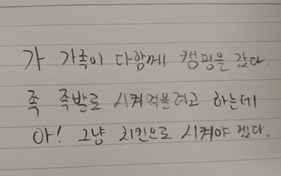 가 가족이 다함께 캠핑을 갔다.
족 족발로 시켜먹을려고 하는데
아! 그냥 치킨으로 시켜야겠다.